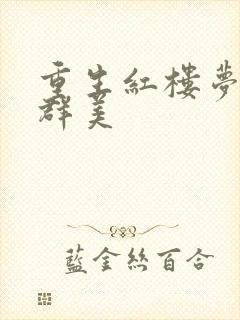 重生紅樓夢
群美
藍金絲百合